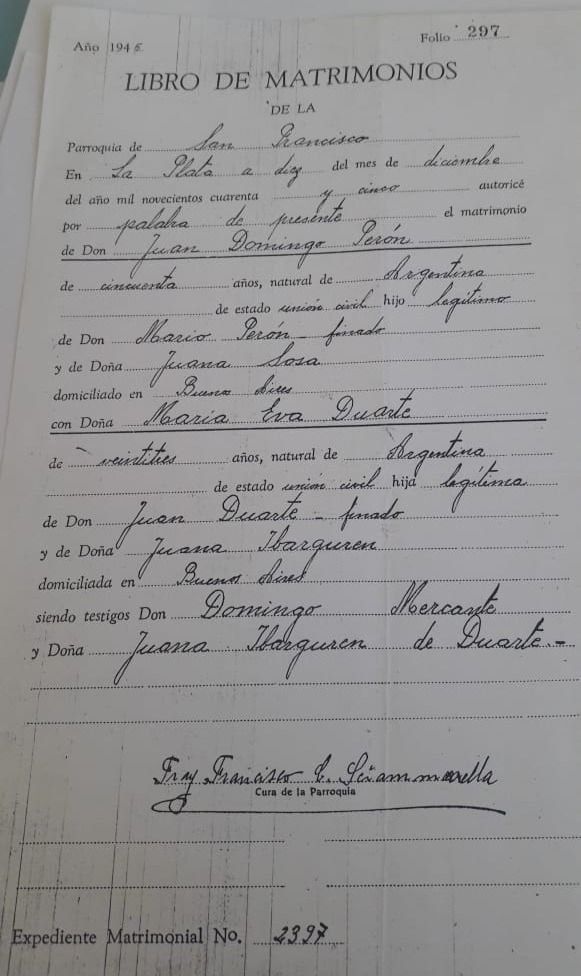 Año 1945 Folio 297
LIBRO DE MATRIMONIOS
DE LA
Parroquia de San Francisco
En La Plata a diez del mes de diciembre
del año mil novecientos cuarenta y cinco autoricé
por palabra de presente el matrimonio
de Don Juan Domingo Perón
de cincuenta años, natural de Argentina
de estado unión civil hijo legítimo
de Don Mario Perón - finado
y de Doña Juana Sosa
domiciliado en Buenos Aires
con Doña María Eva Duarte
de veintitres años, natural de Argentina
de estado unión civil hija legítima
de Don Juan Duarte - finado
y de Doña Juana Ibarguren
domiciliada en Buenos Aires
siendo testigos Don Domingo Mercante
y Doña Juana Ibarguren de Duarte.-
Fray Francisco
Cura de la Parroquia
Expediente Matrimonial No. 2397